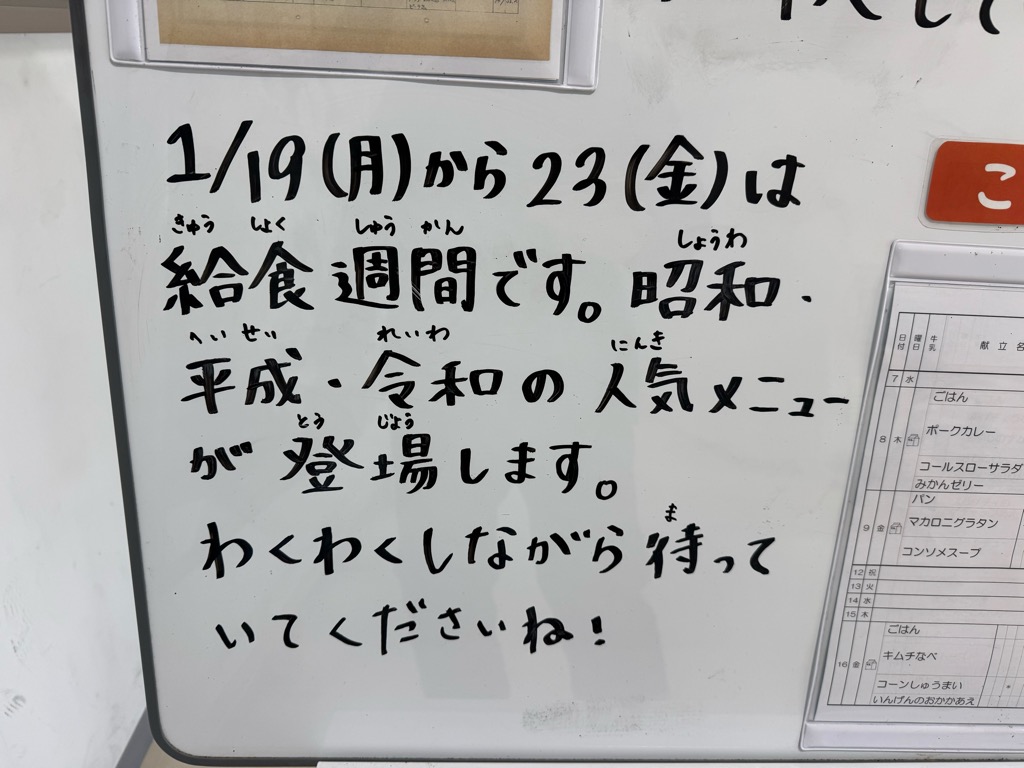 1/19(月)から23(金)は
きゅう しょく しゅう かん
給食週間です。昭和・
しょうわ
へいせい れいわ にんき
平成・令和の人気メニュー
とう じょう
が登場します。
ま
わくわくしながら待って
いてくださいね!
こ
日付 曜日 牛乳 献立名
7 水
ごはん
8 木 ポークカレー
コールスローサラダ
みかんゼリー
パン
9 金 マカロニグラタン
コンソメスープ
12 祝
13 火
14 水
15 木
ごはん
16 金 キムチなべ
コーンしゅうまい
いんげんのおかかあえ